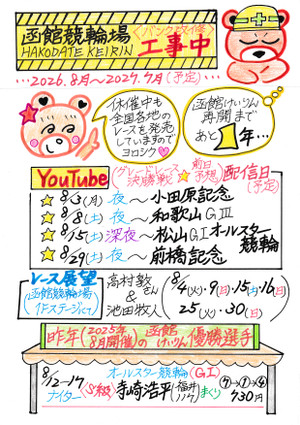 函館競輪場
HAKODATE KEIRIN
〈バンク改修〉
工事中
...2026.8月〜2027.7月(予定)...
休催中も
全国各地の
レースを発売
していますので
ヨロシク♡
函館けいりん
再開まで
あと1年...
YouTube (グレードレース決勝戦 ☆ 前日予想) 配信日(予定)
☆ 8/3(月) 夜〜小田原記念
☆ 8/8(土) 夜〜和歌山GⅢ
☆ 8/15(土) 深夜〜松山GⅠオールスター競輪
☆ 8/29(土) 夜〜前橋記念
レース展望
(函館競輪場 1Fステージにて)
高村敦さん
&
池田牧人
8/4(火)・9(日)・15(土)・16(日)
25(火)・30(日)
昨年(2025年8月開催)の函館けいりん優勝選手
オールスター競輪(GⅠ)
8/12〜17
ナイター〈S級〉寺崎浩平(福井117)まくり
⑦→①→④
730円